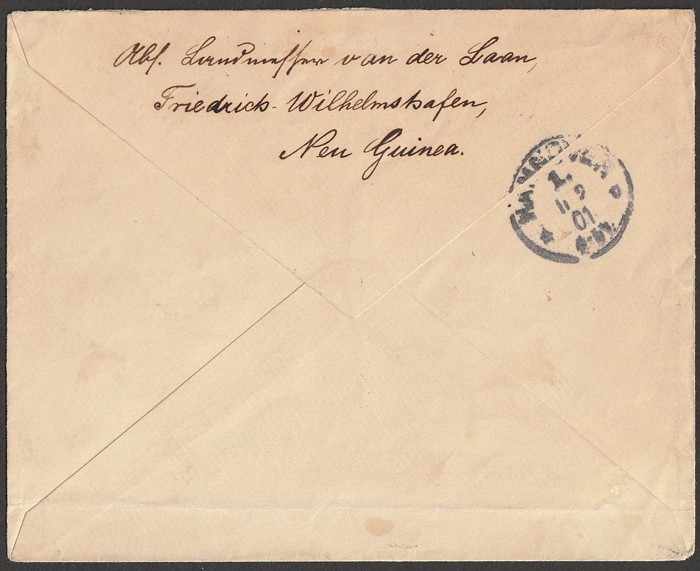 Abs. Landmesser van der Laan,
Friedrich-Wilhelmshafen,
Neu Guinea.
HANNOVER
1.
9
01